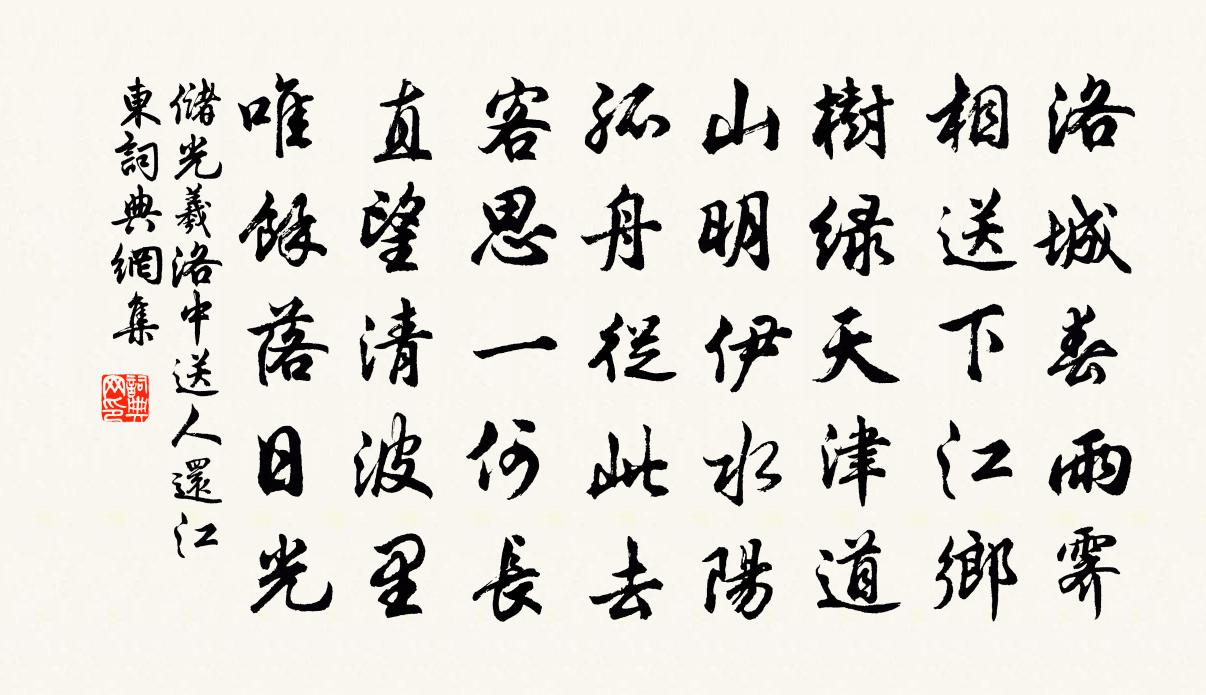 洛城春雨霽
相送下江鄉
樹緑天津道
山明伊水陽
孤舟從此去
客思一何長
直望清波里
唯餘落日光
儲光羲洛中送人還江
東詞典網集
詞典
网印